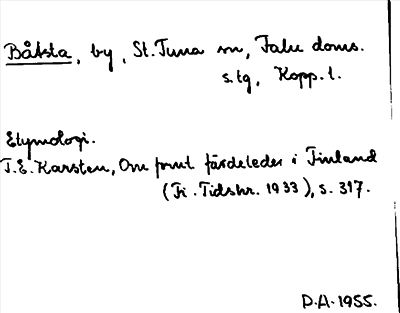 Båtsta, by, St. Tuna sn, Falu doms.
s.tg, Kopp. l.
Etymologi.
T.E. Karsten, Om fornt färdeleder i Finland
(Fi. Tidskr. 1933), s. 317.
D.A. 1955.